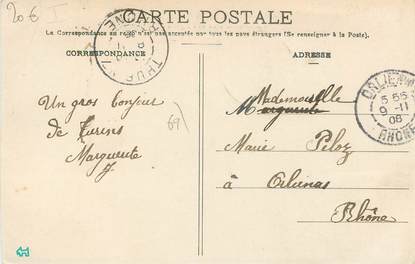 20€ I
CARTE POSTALE
La Correspondance au recto n'est pas acceptée par tous les pays étrangers (Se renseigner à la Poste).
CORRESPONDANCE
ADRESSE
RHONE
THU
ORLIENAS
5 55
9 -11
08
RHONE
Un gros bonjour
de Turins
Marguerite
69
Mademoiselle
Marguerite
Marie Peloz
à Orlienas
Rhône